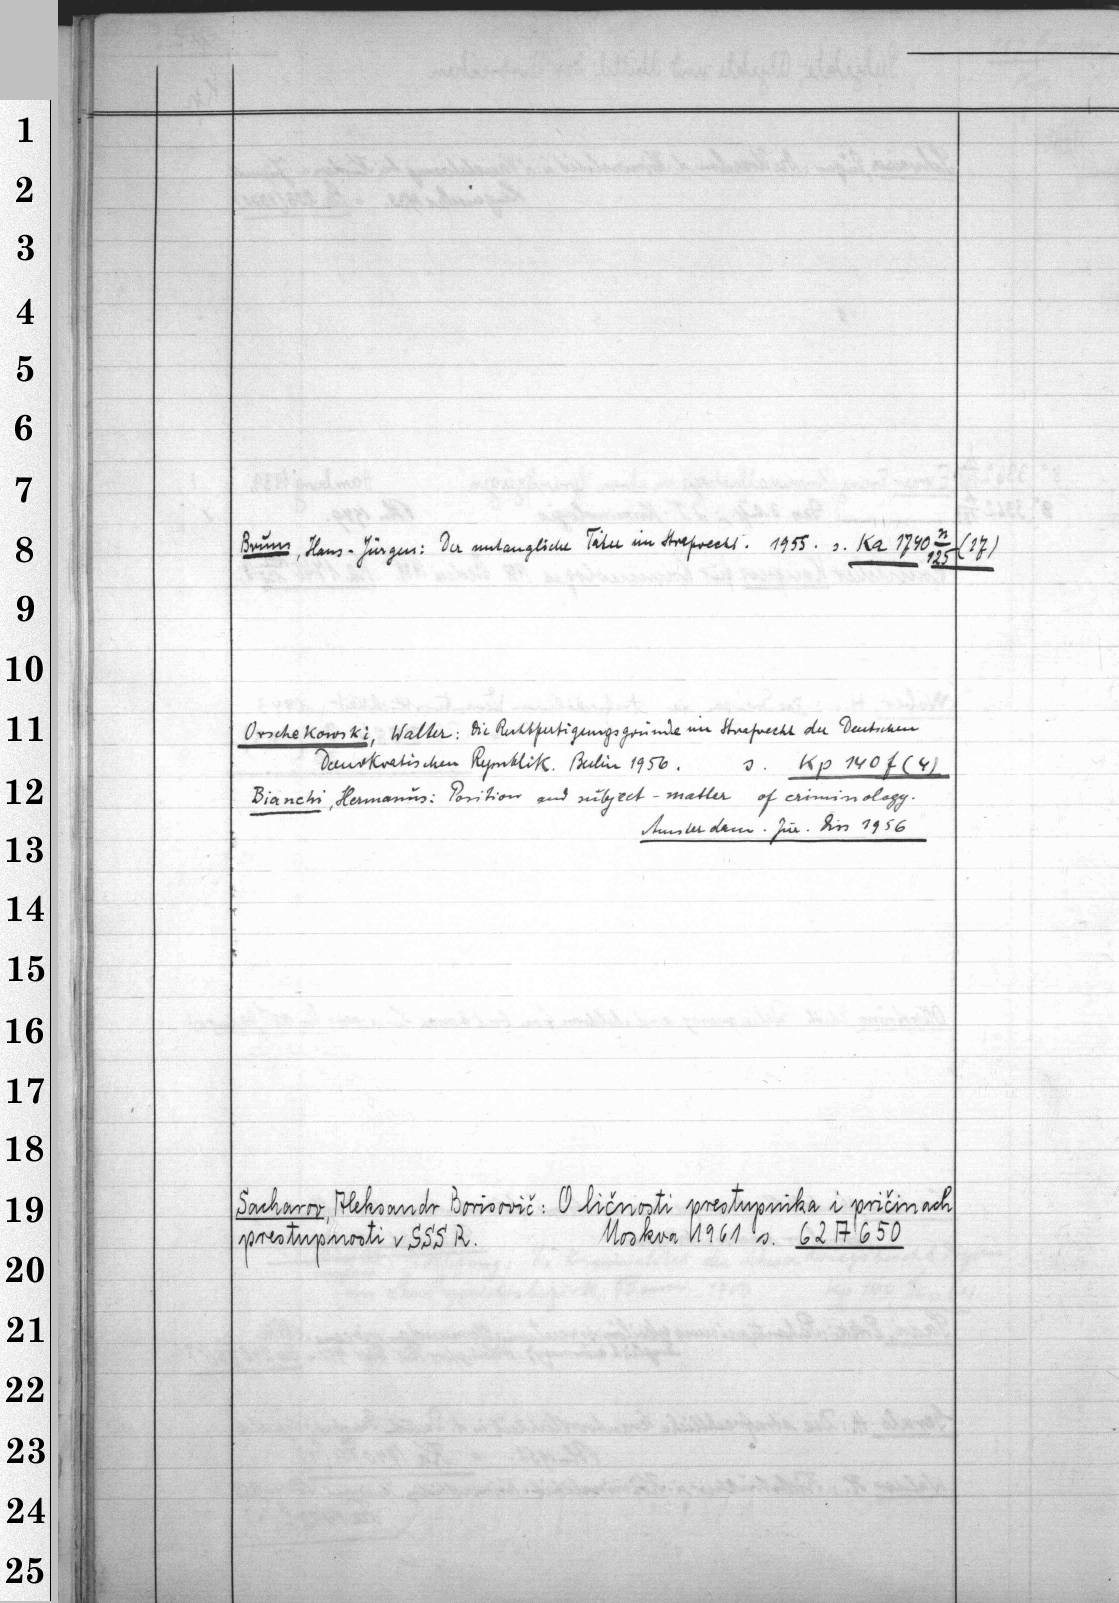 1
2
3
4
5
6
7
8
Bruns, Hans-Jürgen: Der untaugliche Täter im Strafrecht. 1955. s. Ka 1740 n/125 (17)
9
10
11
Orschekowski, Walter: Die Rechtfertigungsgründe im Strafrecht der Deutschen
Demokratischen Republik. Berlin 1956. s. Kp 140 f (4)
12
Bianchi, Hermanus: Position and subject-matter of criminology.
Amsterdam. Jur. Diss 1956
13
14
15
16
17
18
19
Sacharov, Aleksandr Borisovič: O ličnosti prestupnika i pričinach
prestupnosti v SSSR. Moskva 1961 s. 62 A 650
20
21
22
23
24
25